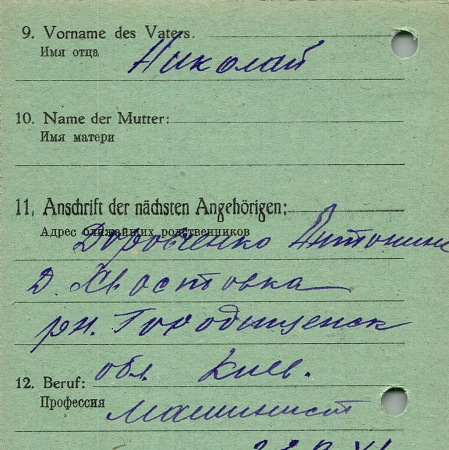 9. Vorname des Vaters.
Имя отца
Николай
10. Name der Mutter:
Имя матери
11. Anschrift der nächsten Angehörigen:
Адрес ближайших родственников
Доровченко Антонине
Д. Хвостовка
рн. Городищенск
обл. Киев.
12. Beruf:
Профессия
Машинист